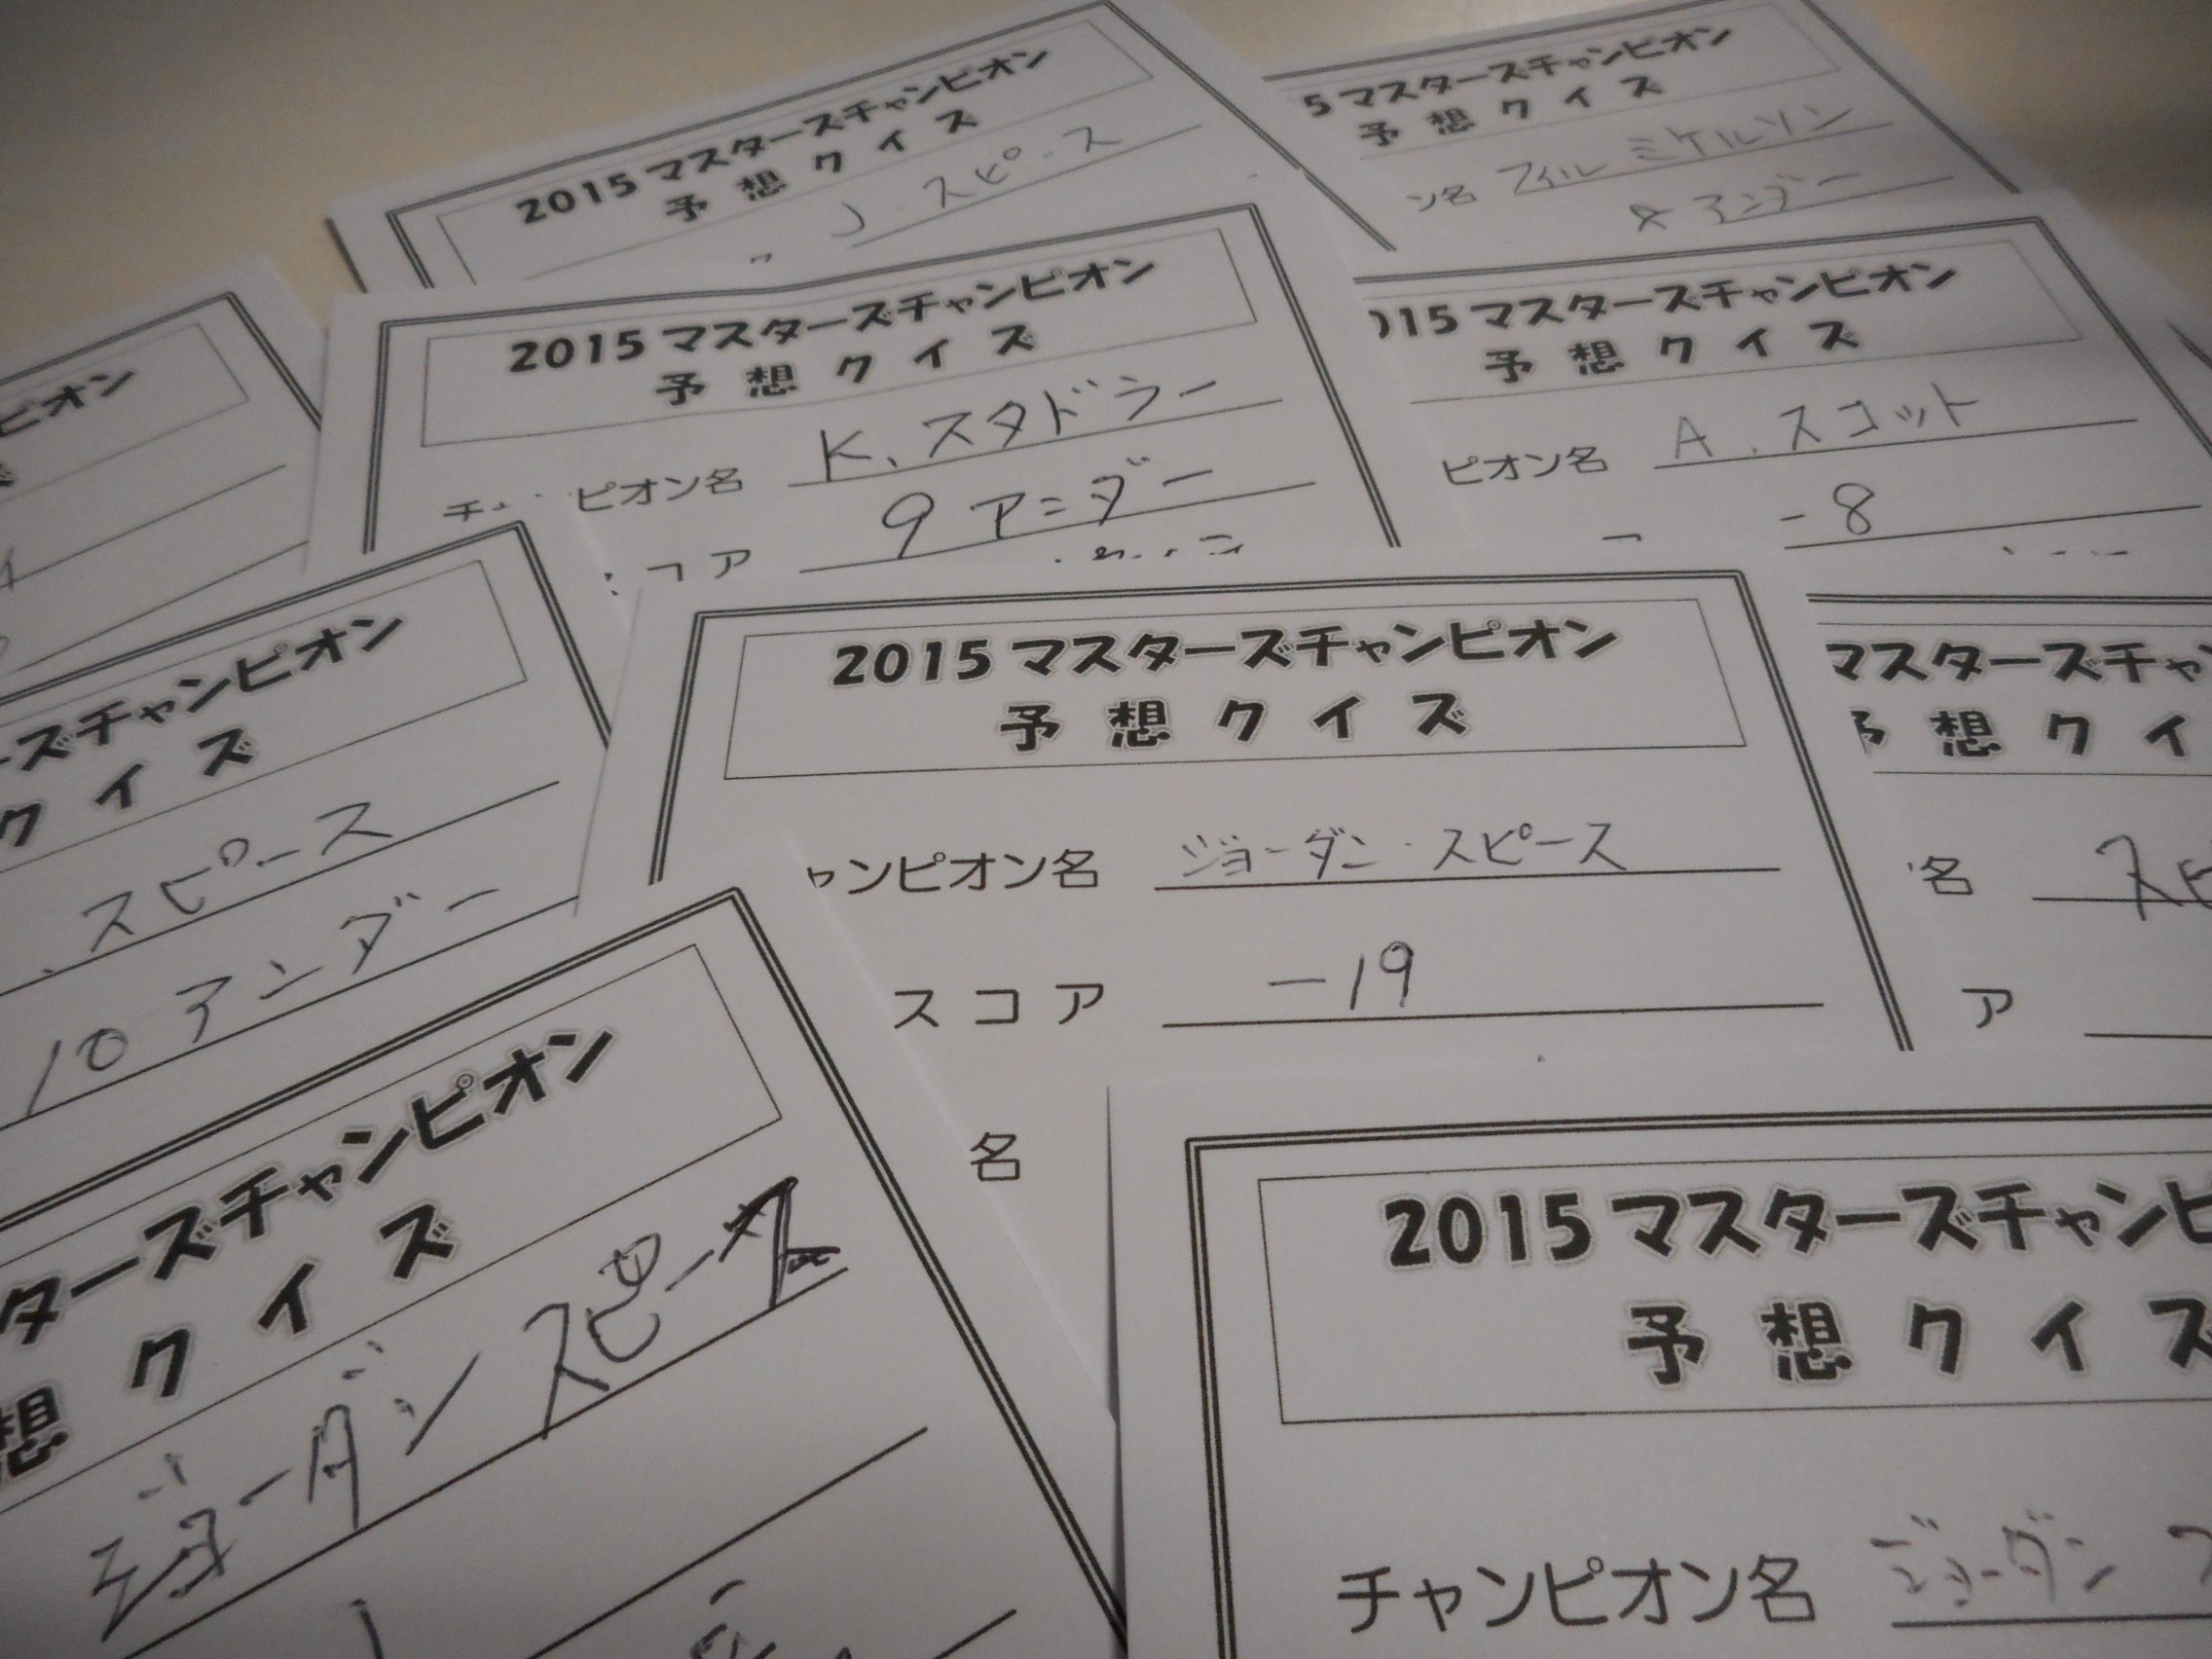 2015マスターズチャンピオン
予想クイズ
J.スピース
5マスターズチャンピオン
予想クイズ
ン名 フィル ミケルソン
8アンダー
2015マスターズチャンピオン
予想クイズ
ピオン名 K.スタドラー
コア 9アンダー
015マスターズチャンピオン
予想クイズ
ピオン名 A.スコット
-8
ピオン
ーズチャンピオン
クイズ
.スピース
10アンダー
2015マスターズチャンピオン
予想クイズ
ャンピオン名 ジョーダン・スピース
スコア -19
名
マスターズチャン
予想クイ
名 スピ
ア
ターズチャンピオン
想クイズ
ジョーダン スピース
2015マスターズチャンピ
予想クイズ
チャンピオン名 ジョーダン ス